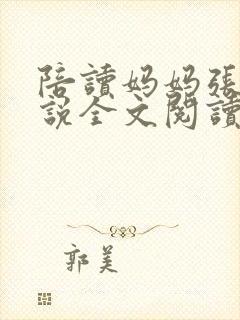 陪讀妈妈張
說全文閱讀
郭美